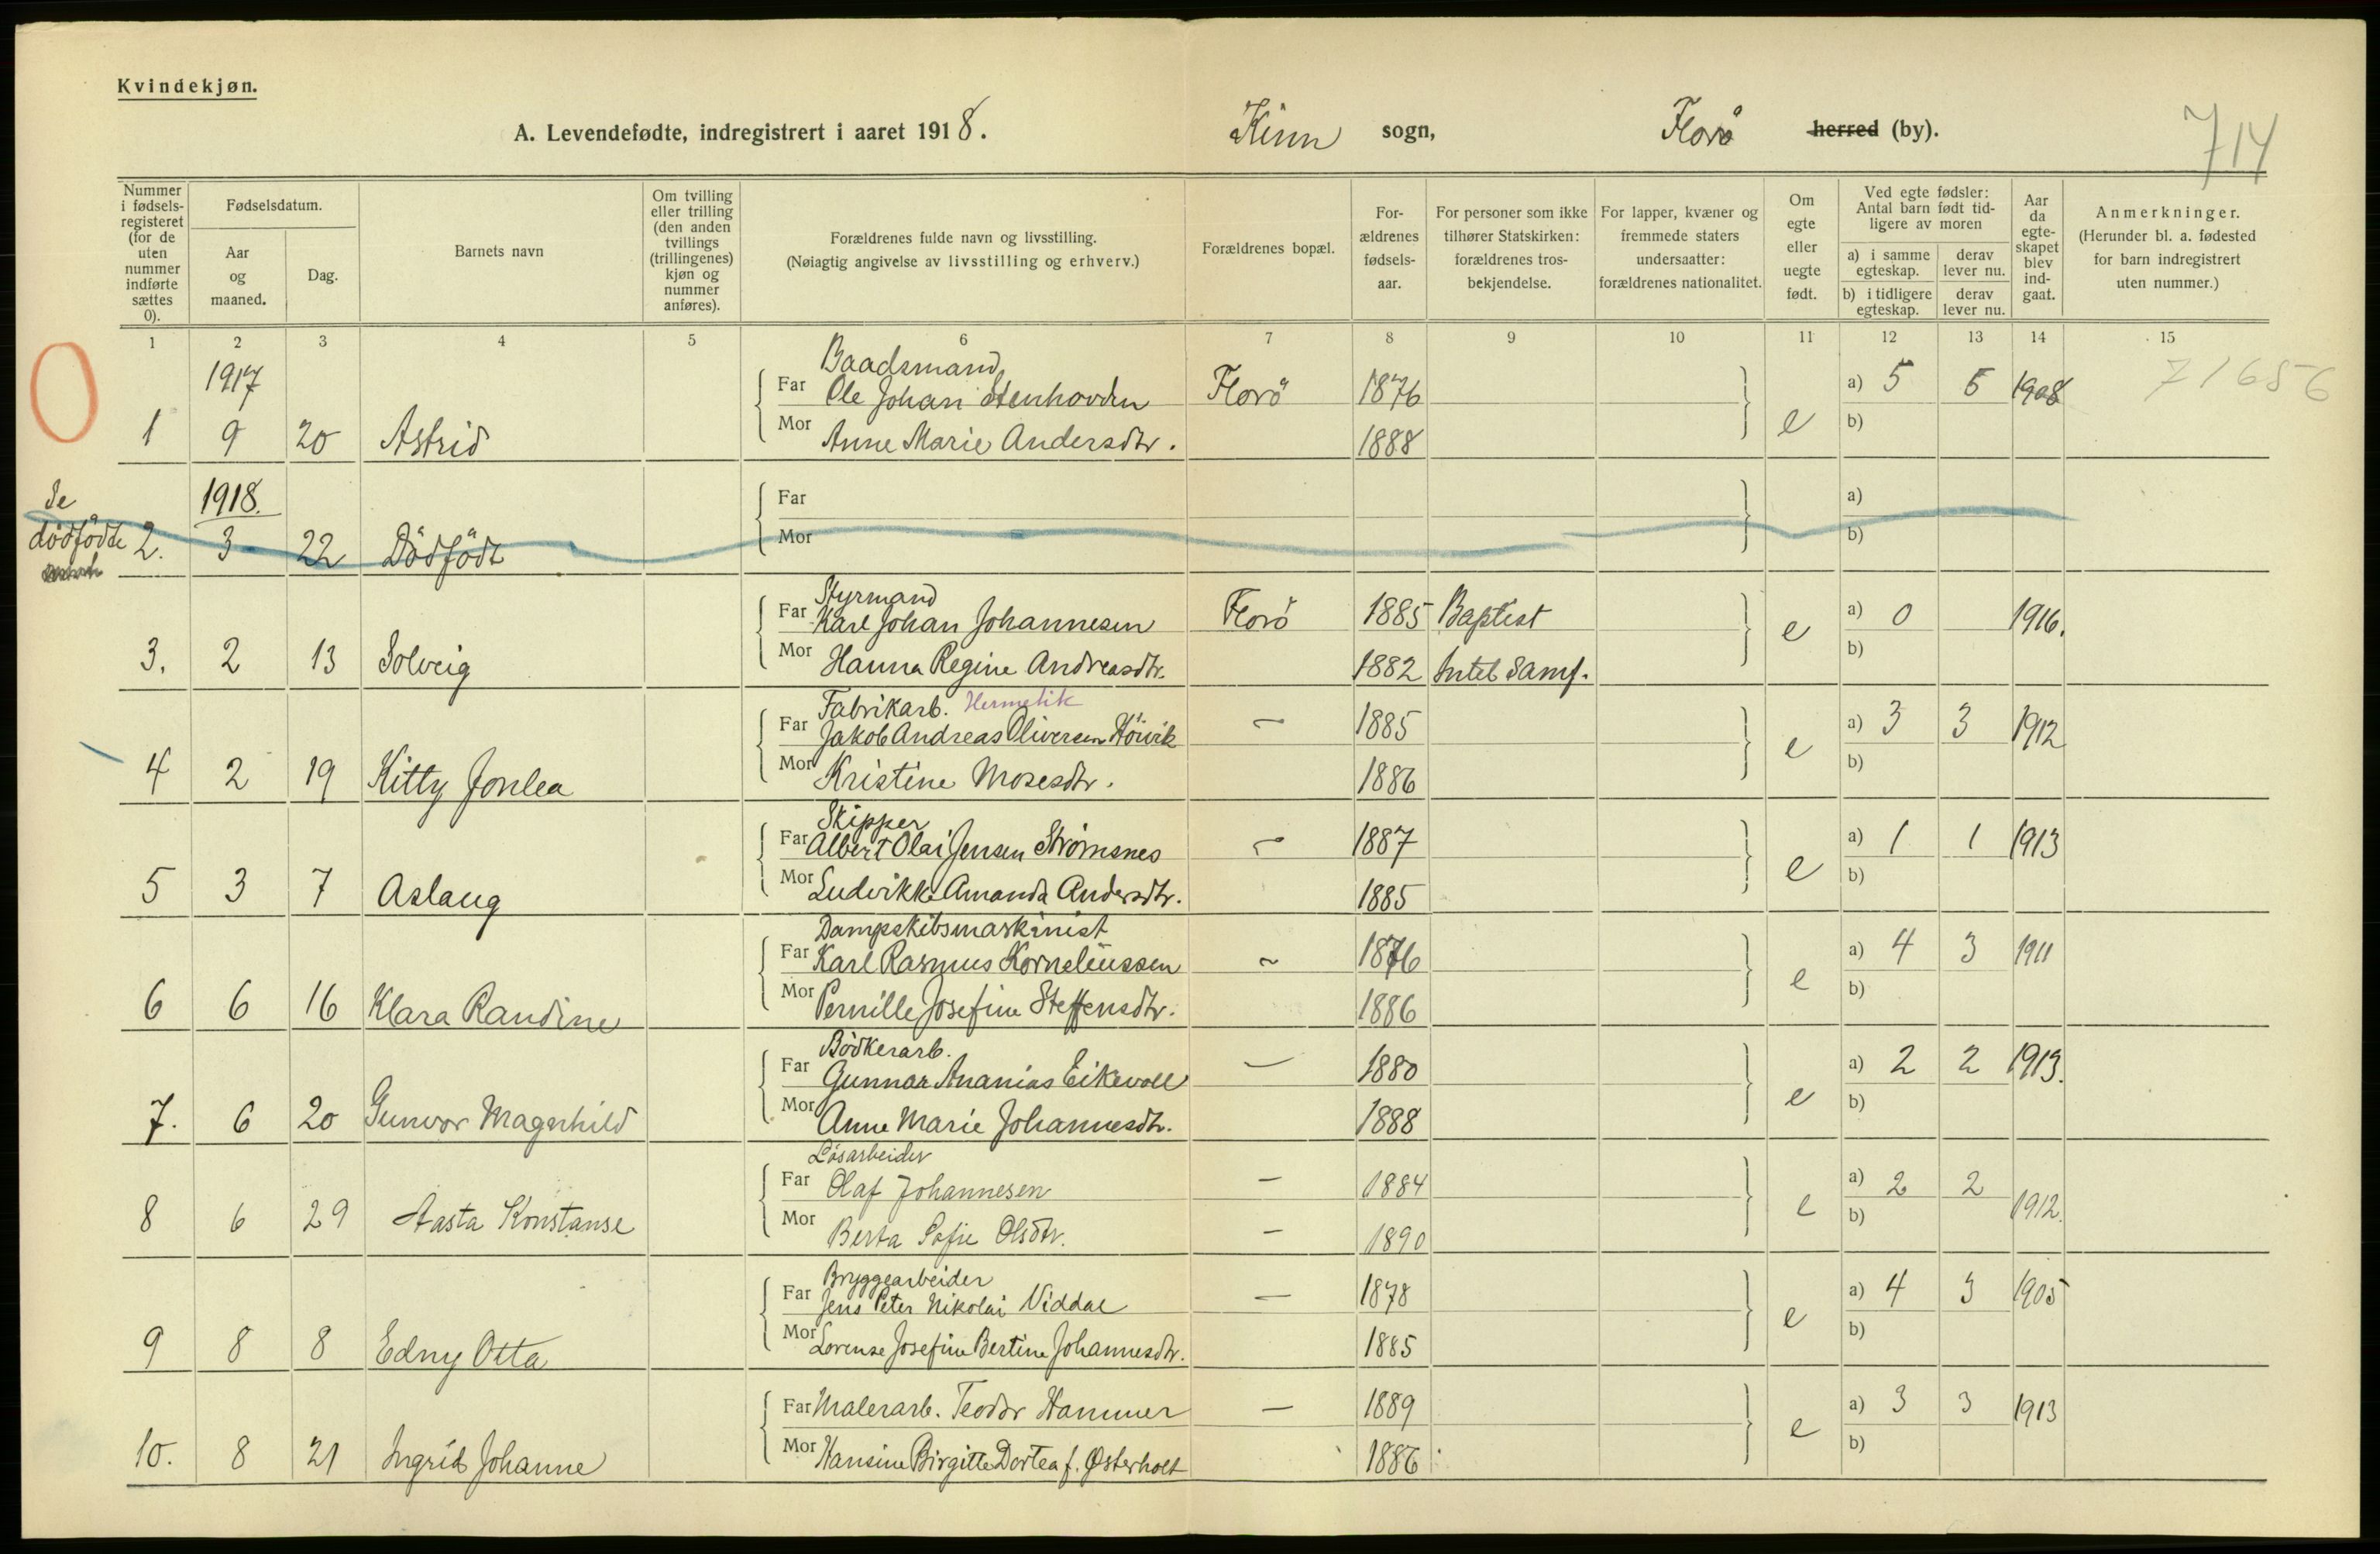 Kvindekjøn.
A. Levendefødte, indregistrert i aaret 1918. Kinn sogn, Florø herred (by). 714
Nummer i fødsels-registeret (for de uten nummer indførte sættes 0).
Fødselsdatum.
Aar og maaned.
Dag.
Barnets navn
Om tvilling eller trilling (den anden tvillings (trillingenes) kjøn og nummer anføres).
Forældrenes fulde navn og livsstilling.
(Nøiagtig angivelse av livsstilling og erhverv.)
Forældrenes bopæl.
For-ældrenes fødsels-aar.
For personer som ikke tilhører Statskirken: forældrenes tros-bekjendelse.
For lapper, kvæner og fremmede staters undersaatter: forældrenes nationalitet.
Om egte eller uegte født.
Ved egte fødsler: Antal barn født tid-ligere av moren
a) i samme egteskap. derav lever nu.
b) i tidligere egteskap. derav lever nu.
Aar da egte-skapet blev ind-gaat.
Anmerkninger.
(Herunder bl. a. fødested for barn indregistrert uten nummer.)
1 2 3 4 5 6 7 8 9 10 11 12 13 14 15
0 1917 Baadsmand 71656
Far Ole Johan Stenhovden Florø 1876 a) 5 5 1908
1 9 20 Astrid Mor Anne Marie Andersdtr. 1888 e b)
Se 1918. Far a)
dødfødte 2. 3 22 Dødfødt Mor b)
Styrmand
Far Karl Johan Johannesen Florø 1885 Baptist a) 0 1916.
3. 2 13 Solveig Mor Hanna Regine Andreasdtr. 1882 Intet Samf. e b)
Fabrikarb. Hermetik
Far Jakob Andreas Oliversen Hôvik — 1885 a) 3 3 1912
4 2 19 Kitty Jonlea Mor Kristine Mosesdtr. 1886 e b)
Skipper
Far Albert Olai Jensen Strømsnes — 1887 a) 1 1 1913
5 3 7 Aslaug Mor Ludvikke Amanda Andersdtr. 1885 e b)
Dampskibsmaskinist
Far Karl Rasmus Korneliussen ~ 1876 a) 4 3 1911
6 6 16 Klara Randine Mor Pernille Josefine Steffensdtr. 1886 e b)
Bödkerarb.
Far Gunnar Ananias Eikevoll — 1880 a) 2 2 1913.
7. 6 20 Gunvor Magnhild Mor Anne Marie Johannesdtr. 1888 e b)
Løsarbeider
Far Olaf Johannesen — 1884 a) 2 2 1912.
8 6 29 Aasta Konstanse Mor Berta Sofie Olsdtr. — 1890 e b)
Bryggearbeider
Far Jens Peter Nikolai Viddal — 1878 a) 4 3 1905
9 8 8 Edny Otta Mor Lorense Josefine Bertine Johannesdtr. 1885 e b)
Far Malerarb. Teodor Hammer — 1889 a) 3 3 1913
10. 8 21 Ingrid Johanne Mor Hansine Birgitte Dortea f. Østerholt 1886 e b)